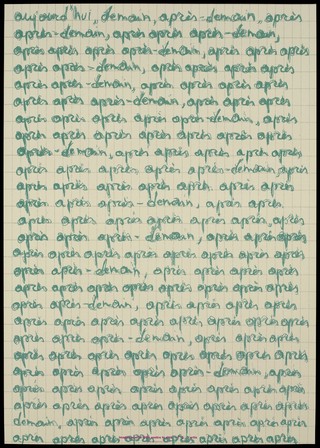 aujourd'hui, demain, après-demain, après
après-demain, après après après-demain,
après après après après-demain, après après
après après-demain, après après après après
après après-demain, après après après après
après après après-demain, après après après
après après après après après-demain, après
après après après après après après après
après-demain, après après après après après
après après après après après après-demain, après
après après après après après après après
après après après après-demain, après après
après après après après après après après
après après après-demain, après après après
après après après après après après après
après après-demain, après après après après
après après après après après après après
après après-demain, après après après après
après après après après après après après
après après après après-demain, après après
après après après après après après après
après après après après après-demain, après
après après après après après après après
demain, après après après après après après
après après après après après après après